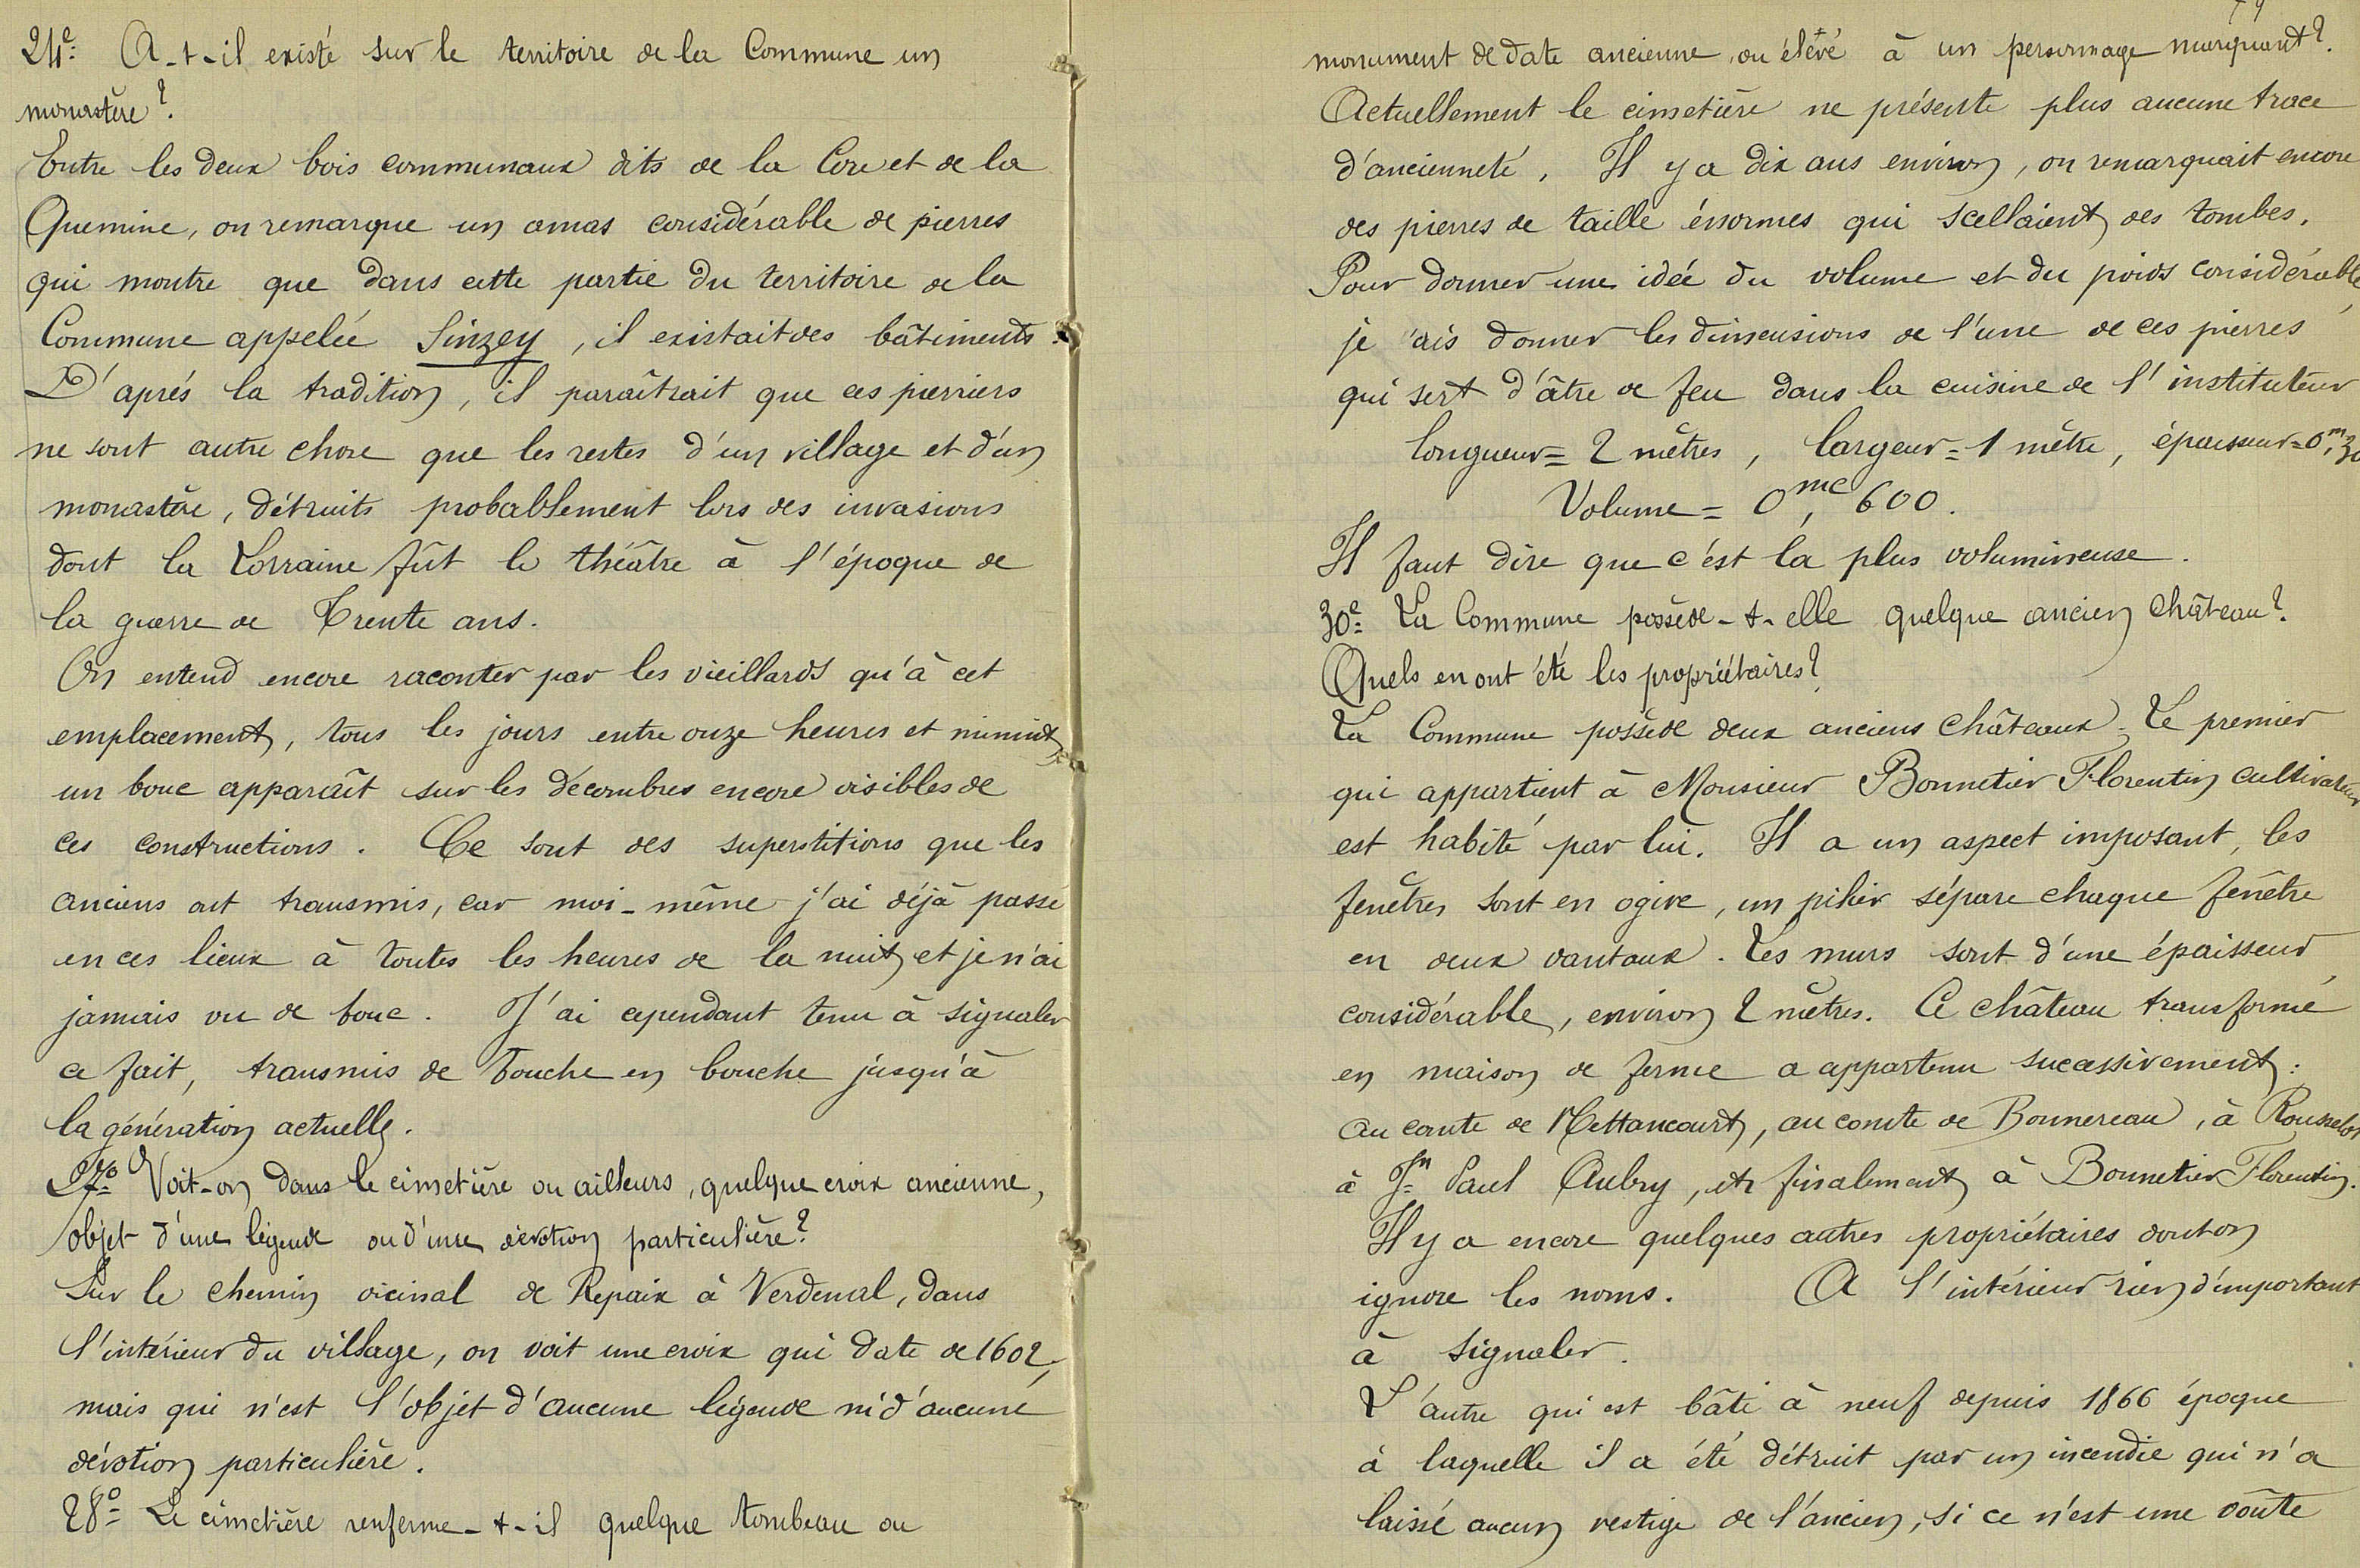 24e: A-t-il existé sur le territoire de la Commune un
monastère?
Entre les deux bois communaux dits de la Core et de la
Quemine, on remarque un amas considérable de pierres
qui montre que dans cette partie du territoire de la
Commune appelée Sinzey, il existait des bâtiments.
D'aprés la tradition, il paraîtrait que ces pierriers
ne sont autre chose que les restes d'un village et d'un
monastère, détruits probablement lors des invasions
dont la Lorraine fût le théâtre à l'époque de
la guerre de Trente ans.
On entend encore raconter par les vieillards qu'à cet
emplacement, tous les jours entre onze heures et minuit
un bouc apparaît sur les décombres encore visibles de
ces constructions. Ce sont des superstitions que les
anciens ont transmis, car moi-même j'ai déjà passé
en ces lieux à toutes les heures de la nuit et je n'ai
jamais vu de bouc. J'ai cependant tenu à signaler
ce fait, transmis de bouche en bouche jusqu'à
la génération actuelle.
27o Voit-on dans le cimetière ou ailleurs, quelque croix ancienne,
objet d'une légende ou d'une dévotion particulière?
Sur le chemin vicinal de Repaix à Verdenal, dans
l'intérieur du village, on voit une croix qui date de 1602,
mais qui n'est l'objet d'aucune légende ni d'aucune
dévotion particulière.
28o Le cimetière renferme-t-il quelque tombeau ou
monument de date ancienne, ou élévé à un personnage marquant?
Actuellement le cimetière ne présente plus aucune trace
d'ancienneté. Il y a dix ans environ, on remarquait encore
des pierres de taille énormes qui scellaient des tombes.
Pour donner une idée du volume et du poids considérable,
je vais donner les dimensions de l'une de ces pierres
qui sert d'âtre de feu dans la cuisine de l'instituteur
longueur = 2 mètres, largeur = 1 mètre, épaisseur = 0m,30
Volume = 0mc,600.
Il faut dire que c'est la plus volumineuse.
30e: La Commune possède-t-elle quelque ancien château?
Quels en ont été les propriétaires?
La Commune possède deux anciens châteaux. Le premier
qui appartient à Monsieur Bonnetier Florentin cultivateur
est habité par lui. Il a un aspect imposant, les
fenêtres sont en ogive, un pilier sépare chaque fenêtre
en deux vantaux. Les murs sont d'une épaisseur
considérable, environ 2 mètres. Ce château transformé
en maison de ferme a appartenu successivement:
au comte de Mettancourt, au comte de Bonnereau, à Rousselot
à Jn Paul Aubry, et finalement à Bonnetier Florentin.
Il y a encore quelques autres propriétaires dont on
ignore les noms. A l'intérieur rien d'important
à signaler.
L'autre qui est bâti à neuf depuis 1866 époque
à laquelle il a été détruit par un incendie qui n'a
laissé aucun vestige de l'ancien, si ce n'est une voûte